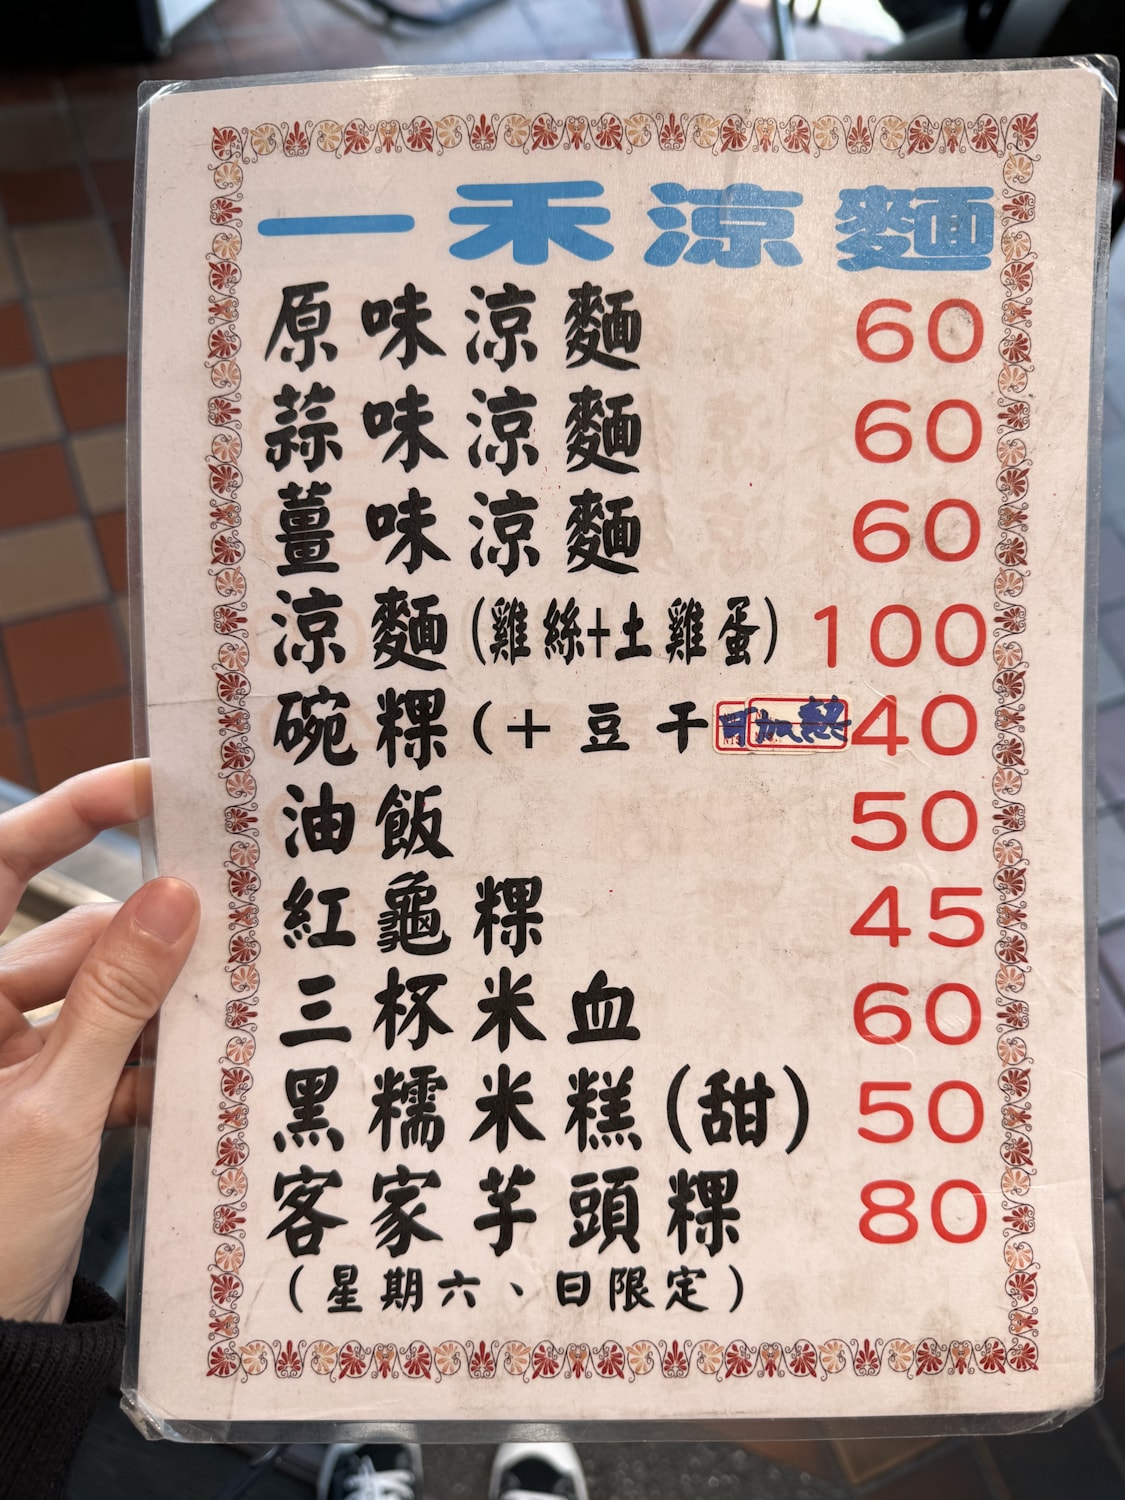 一禾涼麵
原味涼麵 60
蒜味涼麵 60
薑味涼麵 60
涼麵(雞絲+土雞蛋) 100
碗粿(+豆干 可加熱 40
油飯 50
紅龜粿 45
三杯米血 60
黑糯米糕(甜) 50
客家芋頭粿 80
(星期六、日限定)